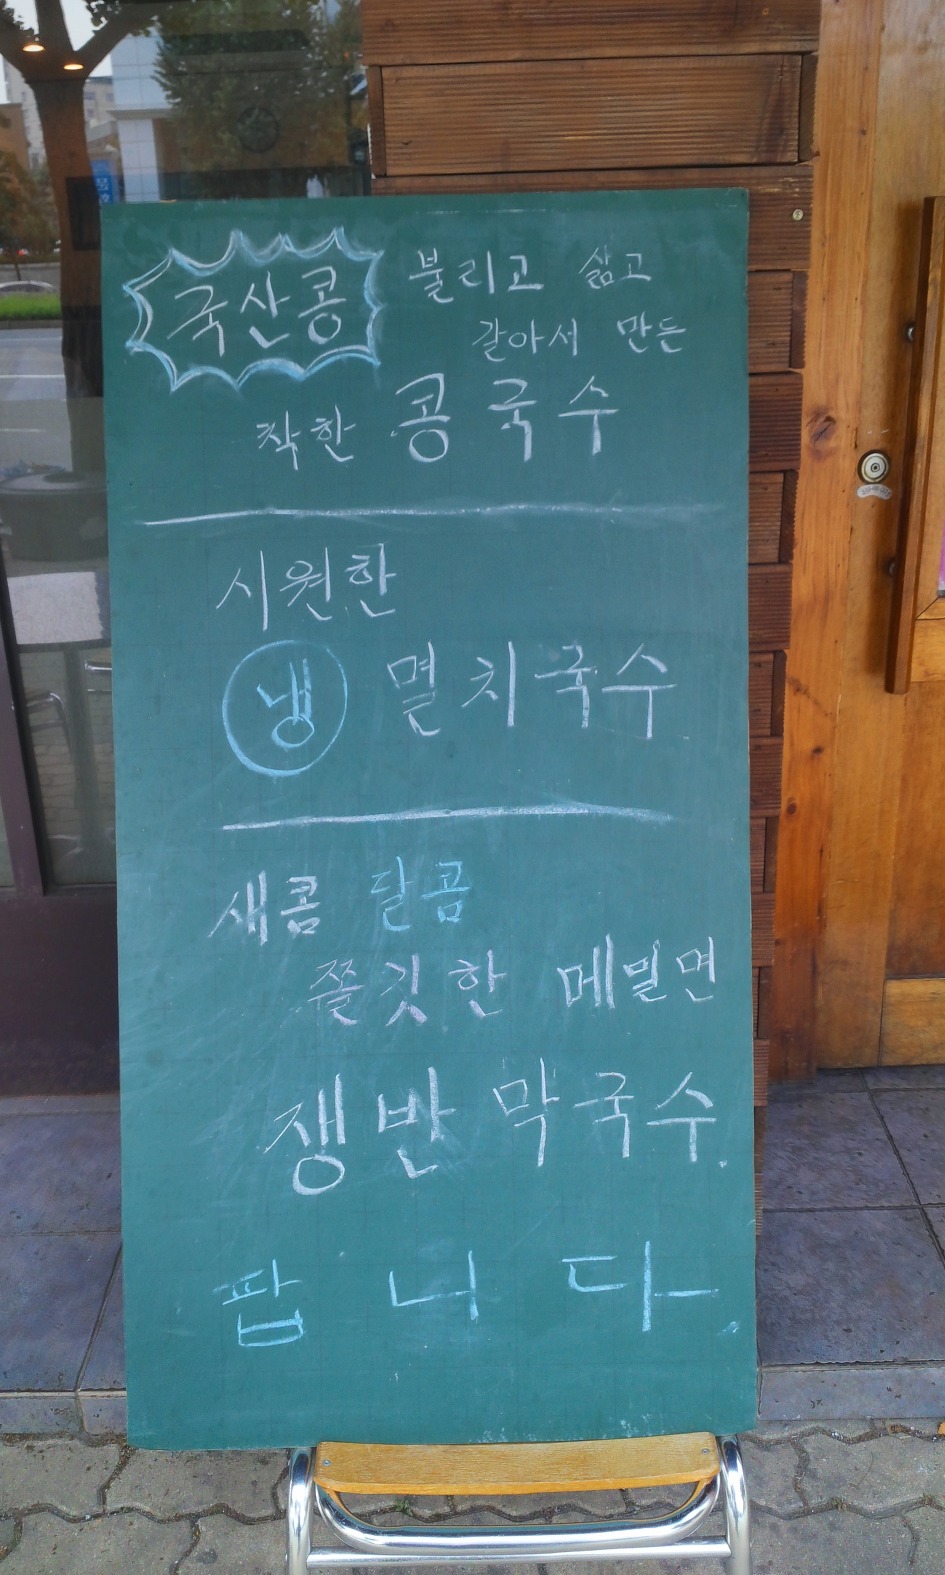 국산콩 불리고 삶고
갈아서 만든
착한 콩국수
시원한
냉 멸치국수
새콤 달콤
쫄깃한 메밀면
쟁반 막국수.
팝니다.